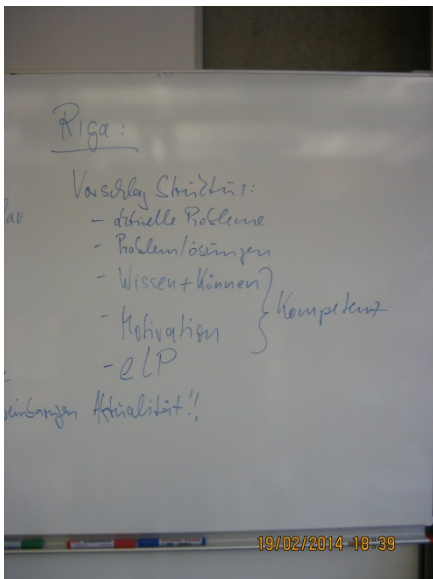 Riga:
Vorschlag Struktur:
- aktuelle Probleme
- Problemlösungen
- Wissen + Können
- Motivation
Kompetenz
- eLP
Aktualität!!
19/02/2014 18:39